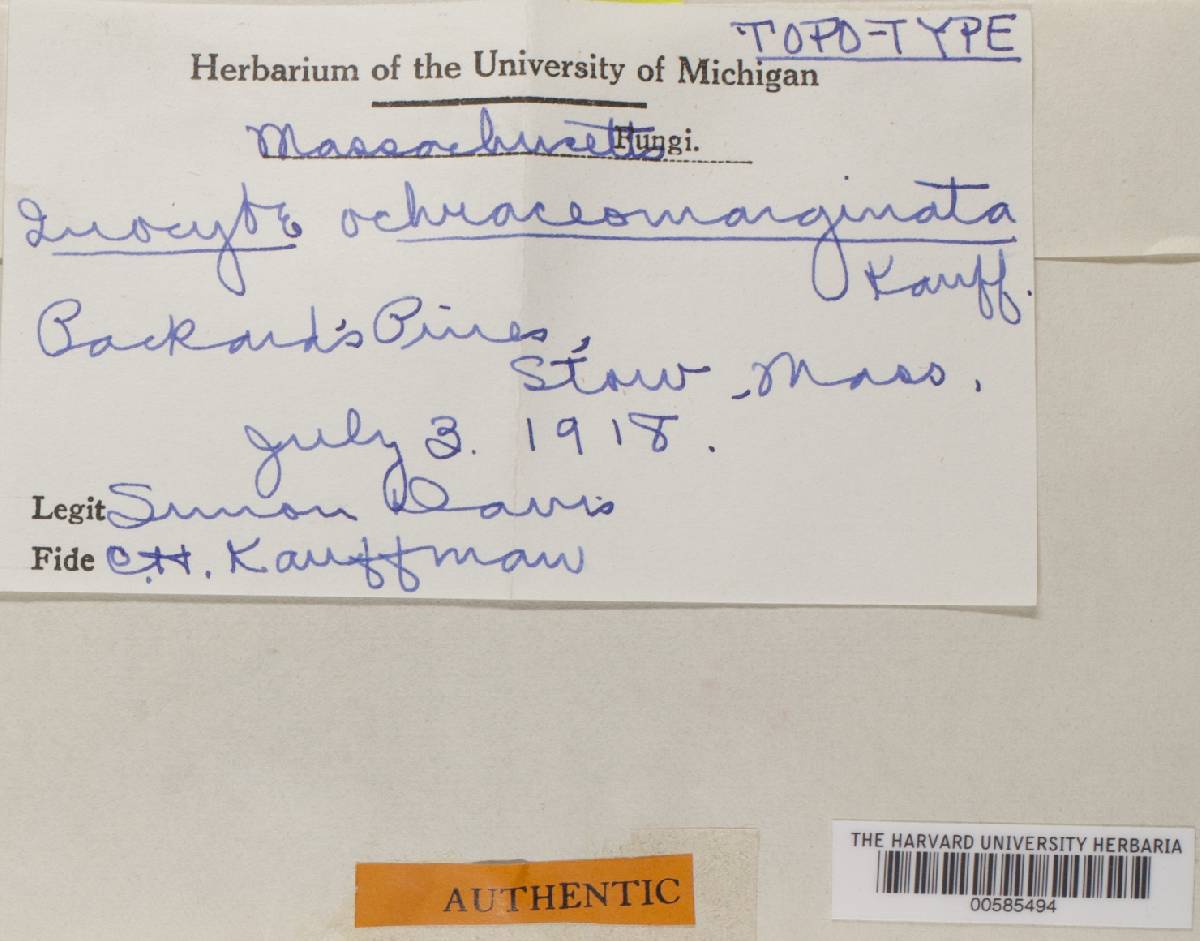 TOPO-TYPE
Herbarium of the University of Michigan
Massachusetts Fungi.
Inocybe ochraceomarginata
Kauff.
Packard's Pines,
Stow, Mass.
July 3. 1918.
Legit Simon Davis
Fide C.H. Kauffman
AUTHENTIC
THE HARVARD UNIVERSITY HERBARIA
00585494